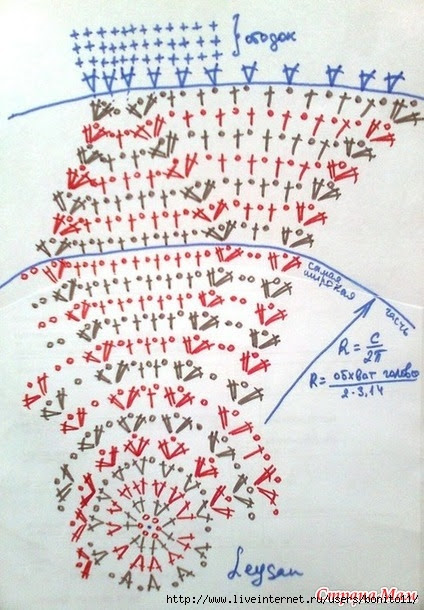 ободок
самая
широкая
часть
R = C
2π
R = обхват головы
2·3,14
Leysan
Страна Мам
http://www.liveinternet.ru/users/bonito11/